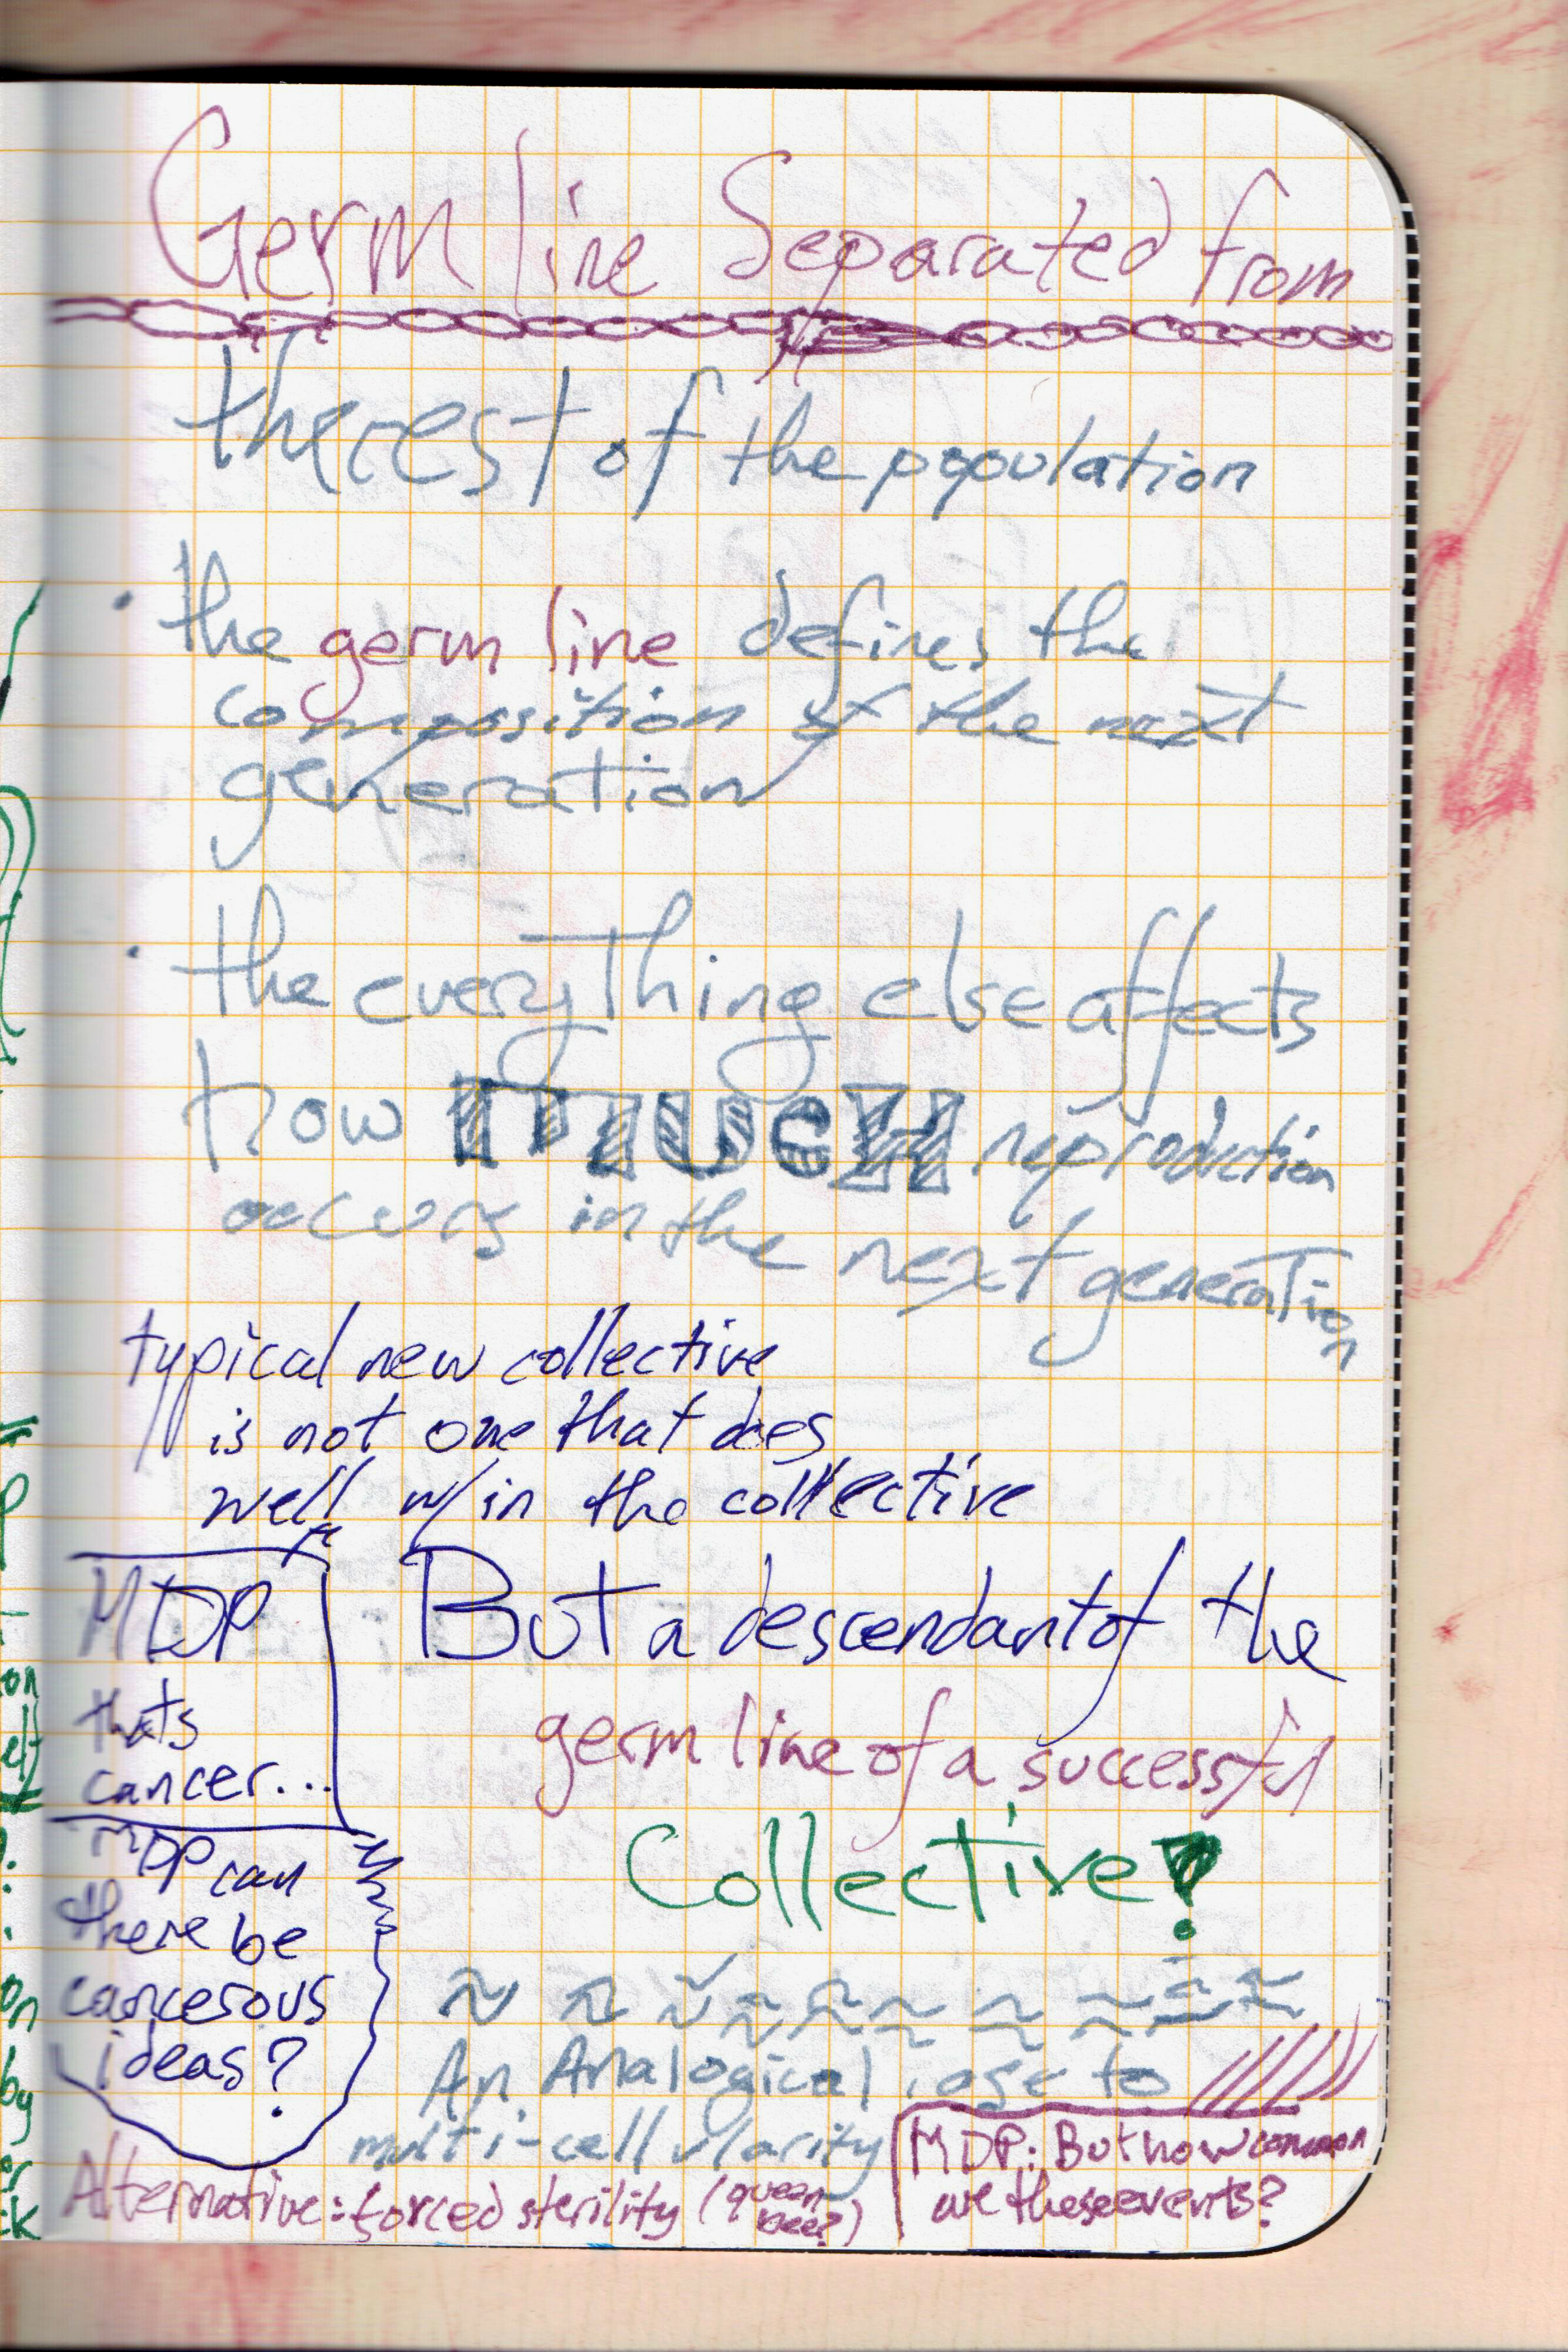 Germ line Separated from
the rest of the population
· the germ line defines the
composition of the next
generation
· the everything else affects
how mucH reproduction
occurs in the next generation
typical new collective
is not one that does
well w/in the collective
MDP
thats
cancer...
But a descendant of the
germ line of a successful
Collective?
MDP can
there be
cancerous
ideas?
An Analogical case to
multi-cellularity
MDP: But how common
are these events?
Alternative: forced sterility (queen
bee?)
on
by
or
ck